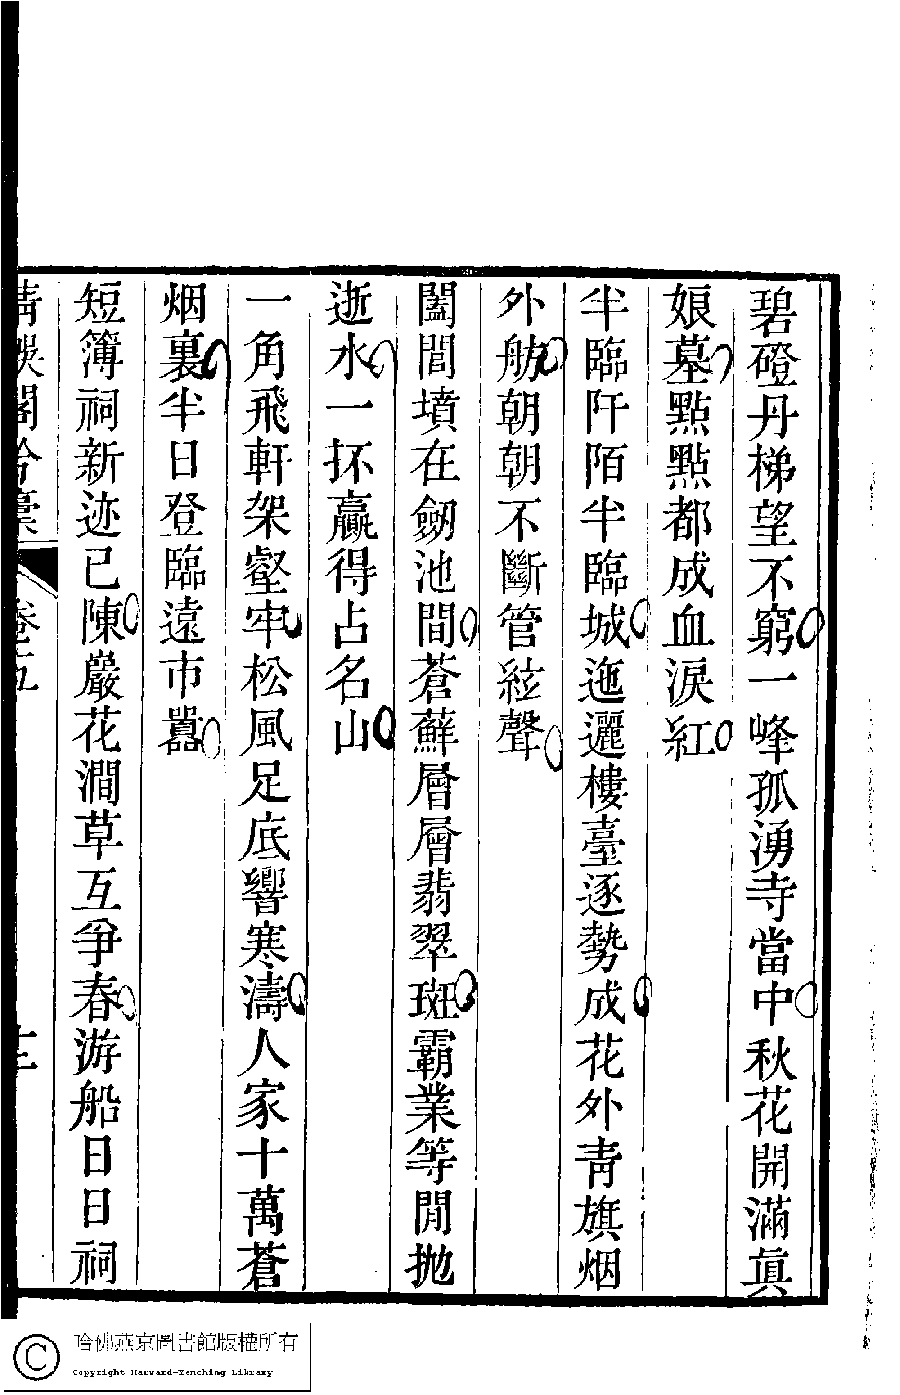 碧磴丹梯望不窮一峰孤湧寺當中秋花開滿眞
娘墓點點都成血淚紅
半臨阡陌半臨城迤邐樓臺逐勢成花外青旗烟
外舫朝朝不斷管絃聲
闔閭墳在劒池間蒼蘚層層翡翠斑霸業等閒拋
逝水一抔贏得占名山
一角飛軒架壑牢松風足底響寒濤人家十萬蒼
烟裏半日登臨遠市囂
短簿祠新迹已陳巖花澗草互爭春游船日日祠
卷五
哈佛燕京圖書館版權所有
Copyright Harvard-Yenching Library